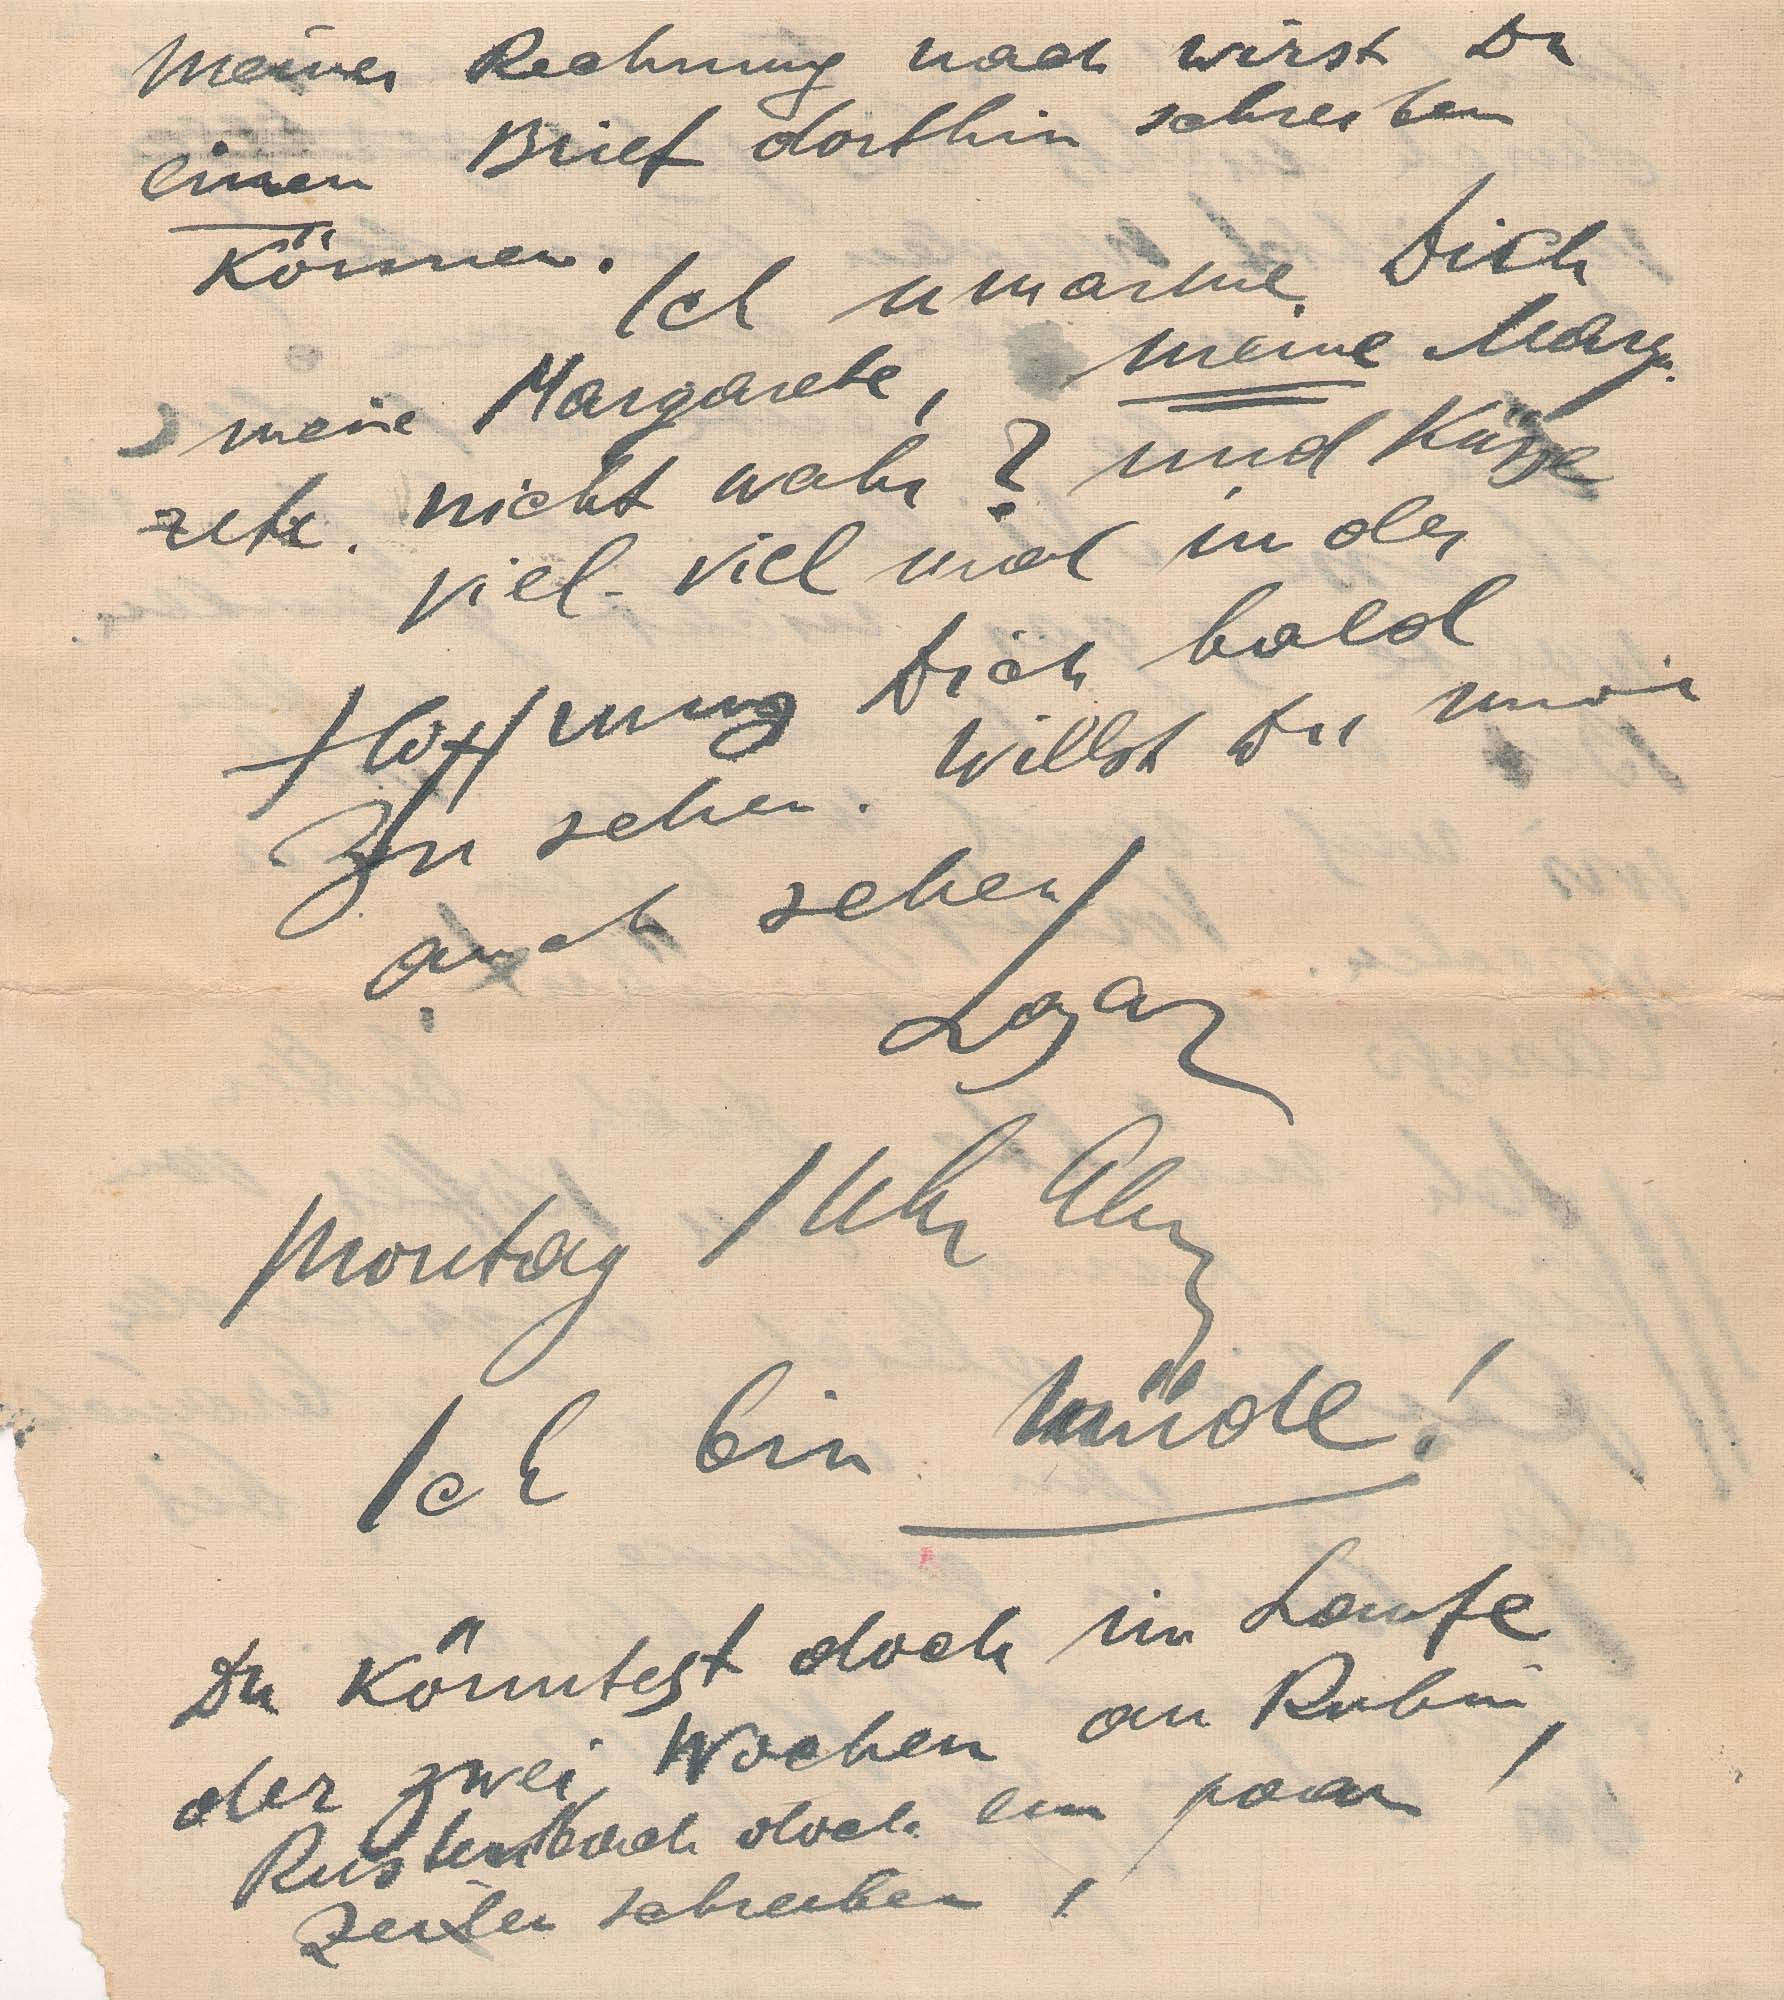 meiner Rechnung nach wirst Du
einen Brief dorthin schreiben
können.
Ich umarme Dich
meine Margarete, meine Marga
rete. nicht wahr? und Küsse
viel-viel mal in der
Hoffnung Dich bald
zu sehen. willst Du mich
auch sehen/
Lazar
Montag 1 Uhr
Ich bin müde!
Du könntest doch im Laufe
der zwei Wochen an Rubin,
Rustenbach doch ein paar
Zeilen schreiben!